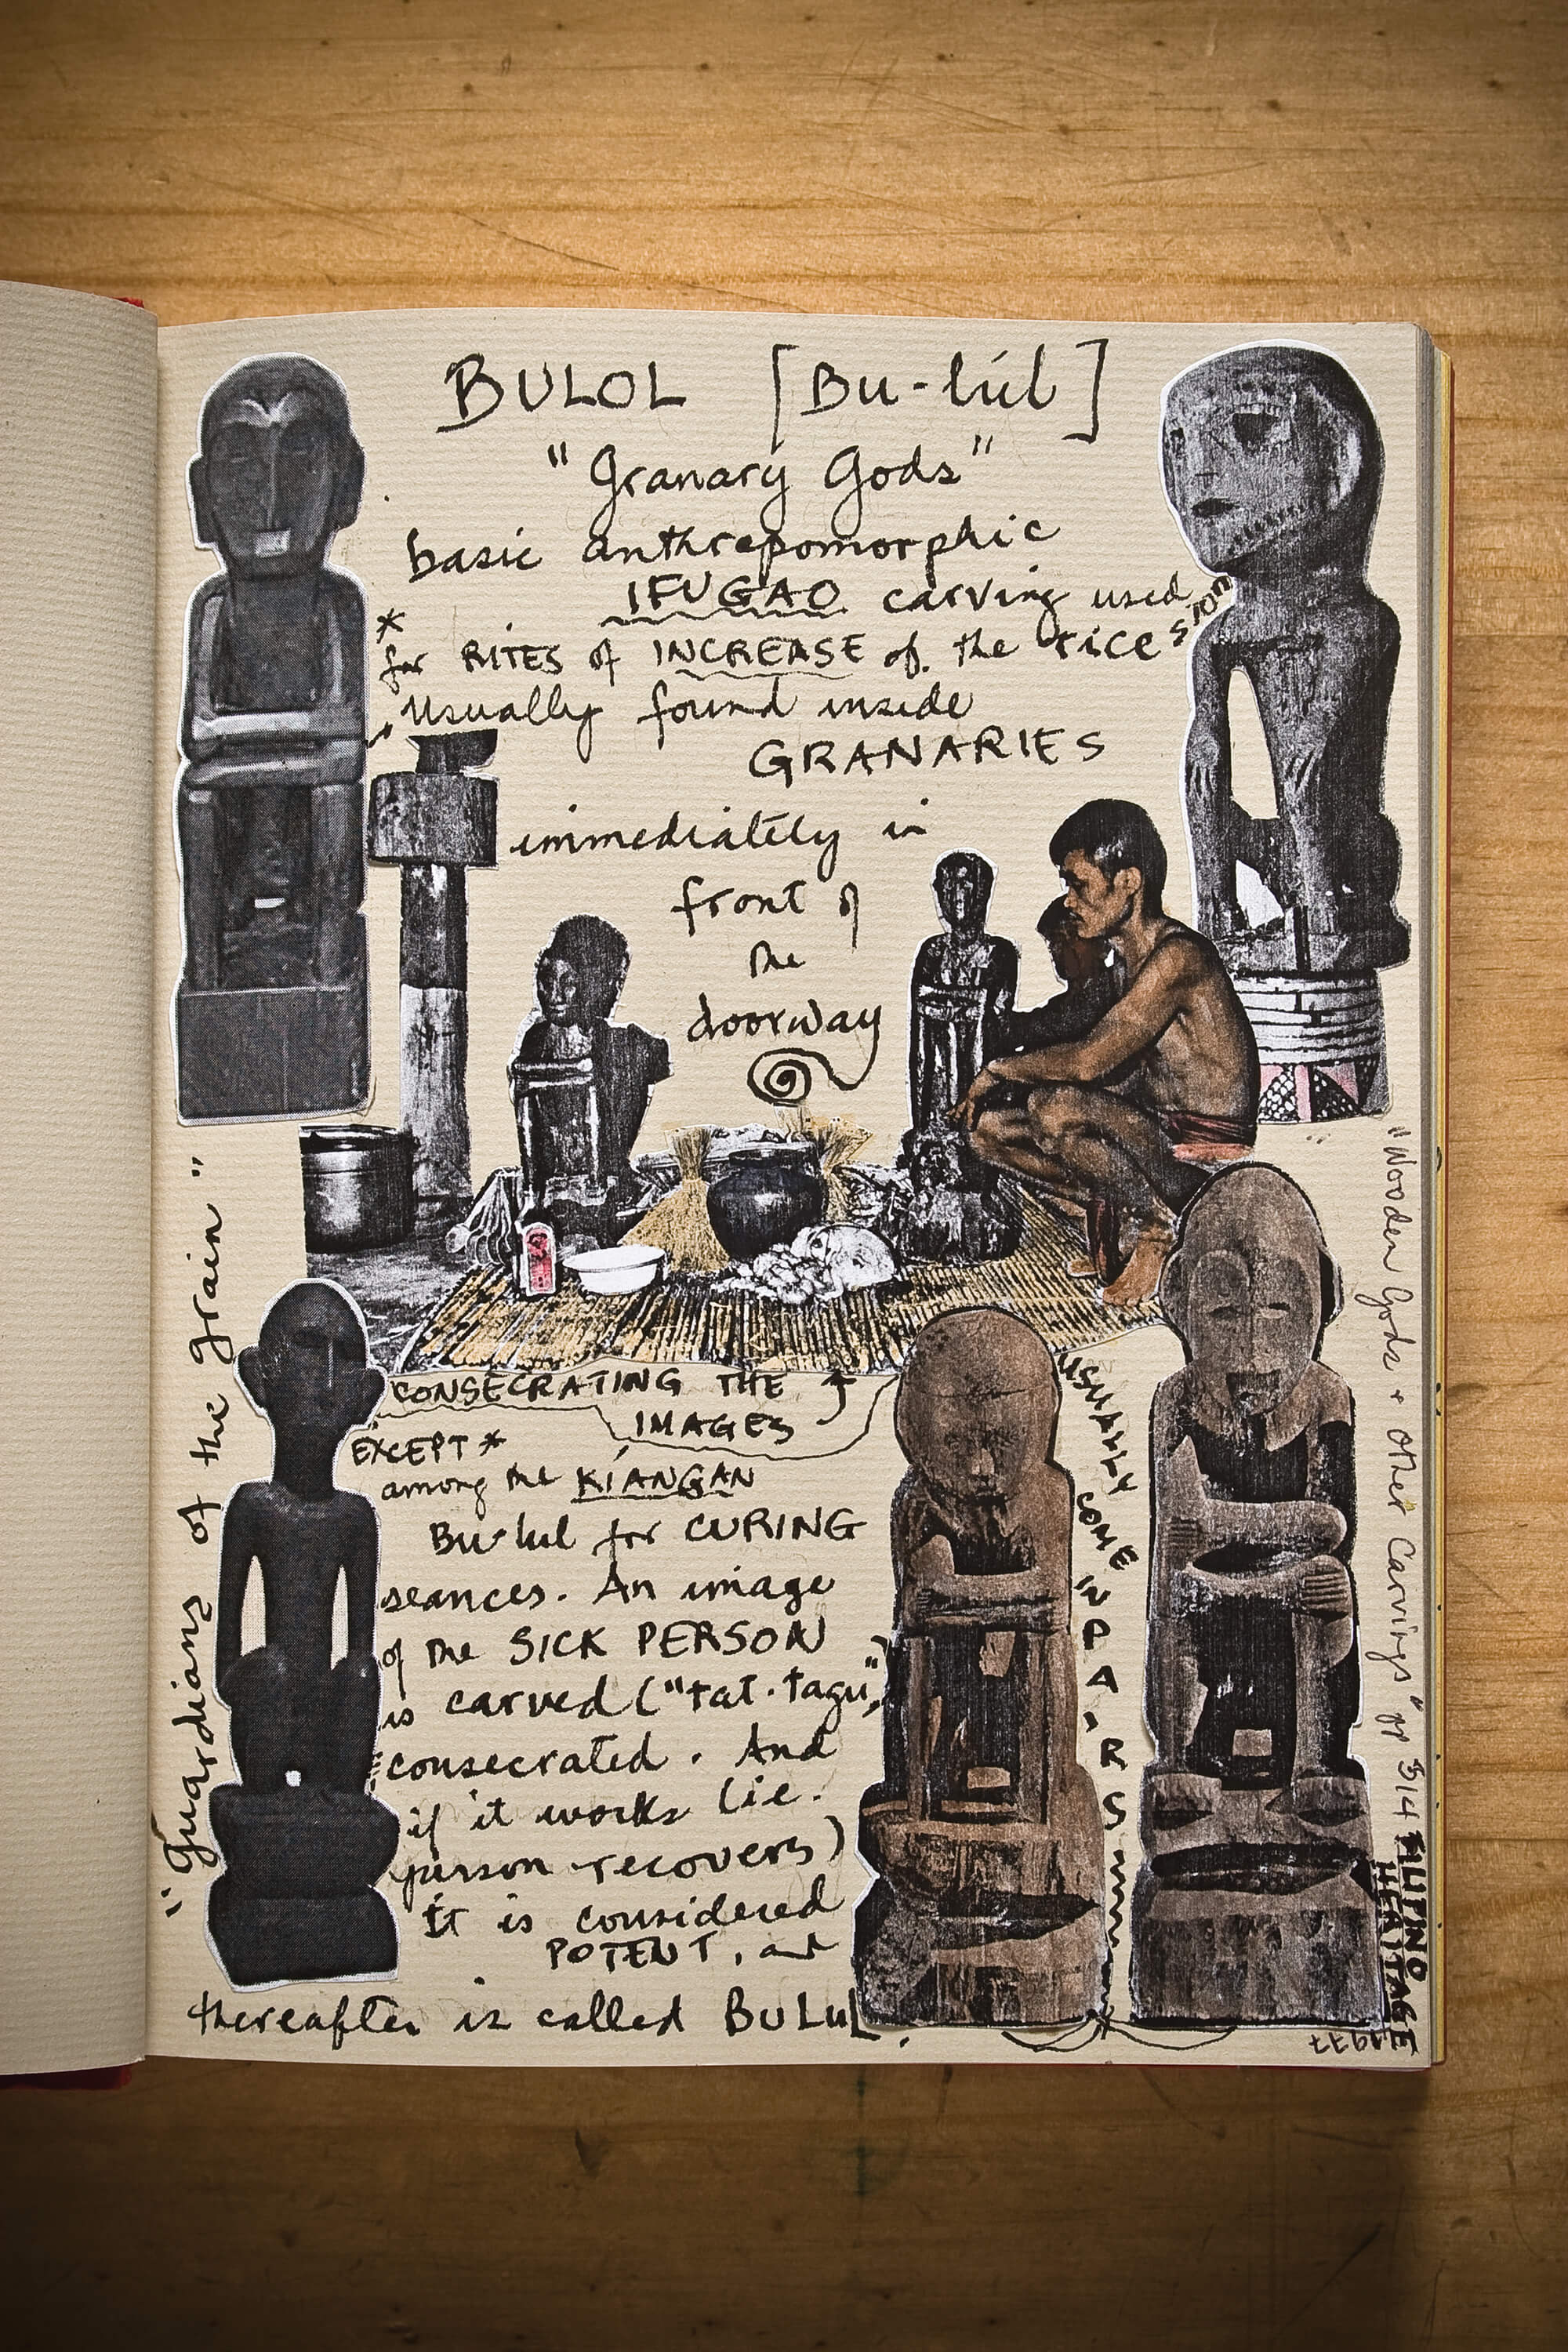 BULOL [Bu-lúl]
"Granary Gods"
basic anthropomorphic
IFUGAO carving used
*
for RITES of INCREASE of the rice
Usually found inside
GRANARIES
immediately in
front of
the
doorway
CONSECRATING THE
IMAGES
EXCEPT *
among the KIANGAN
Bu·lul for CURING
seances. An image
of the SICK PERSON
is carved ("tat·tagu",
consecrated. And
if it works (ie.
person recovers)
It is considered
POTENT, and
thereafter is called BULUL.
"Guardians of the grain"
USUALLY COME IN PAIRS
"Wooden Gods + other Carvings" pp 514 FILIPINO
HERITAGE
1977